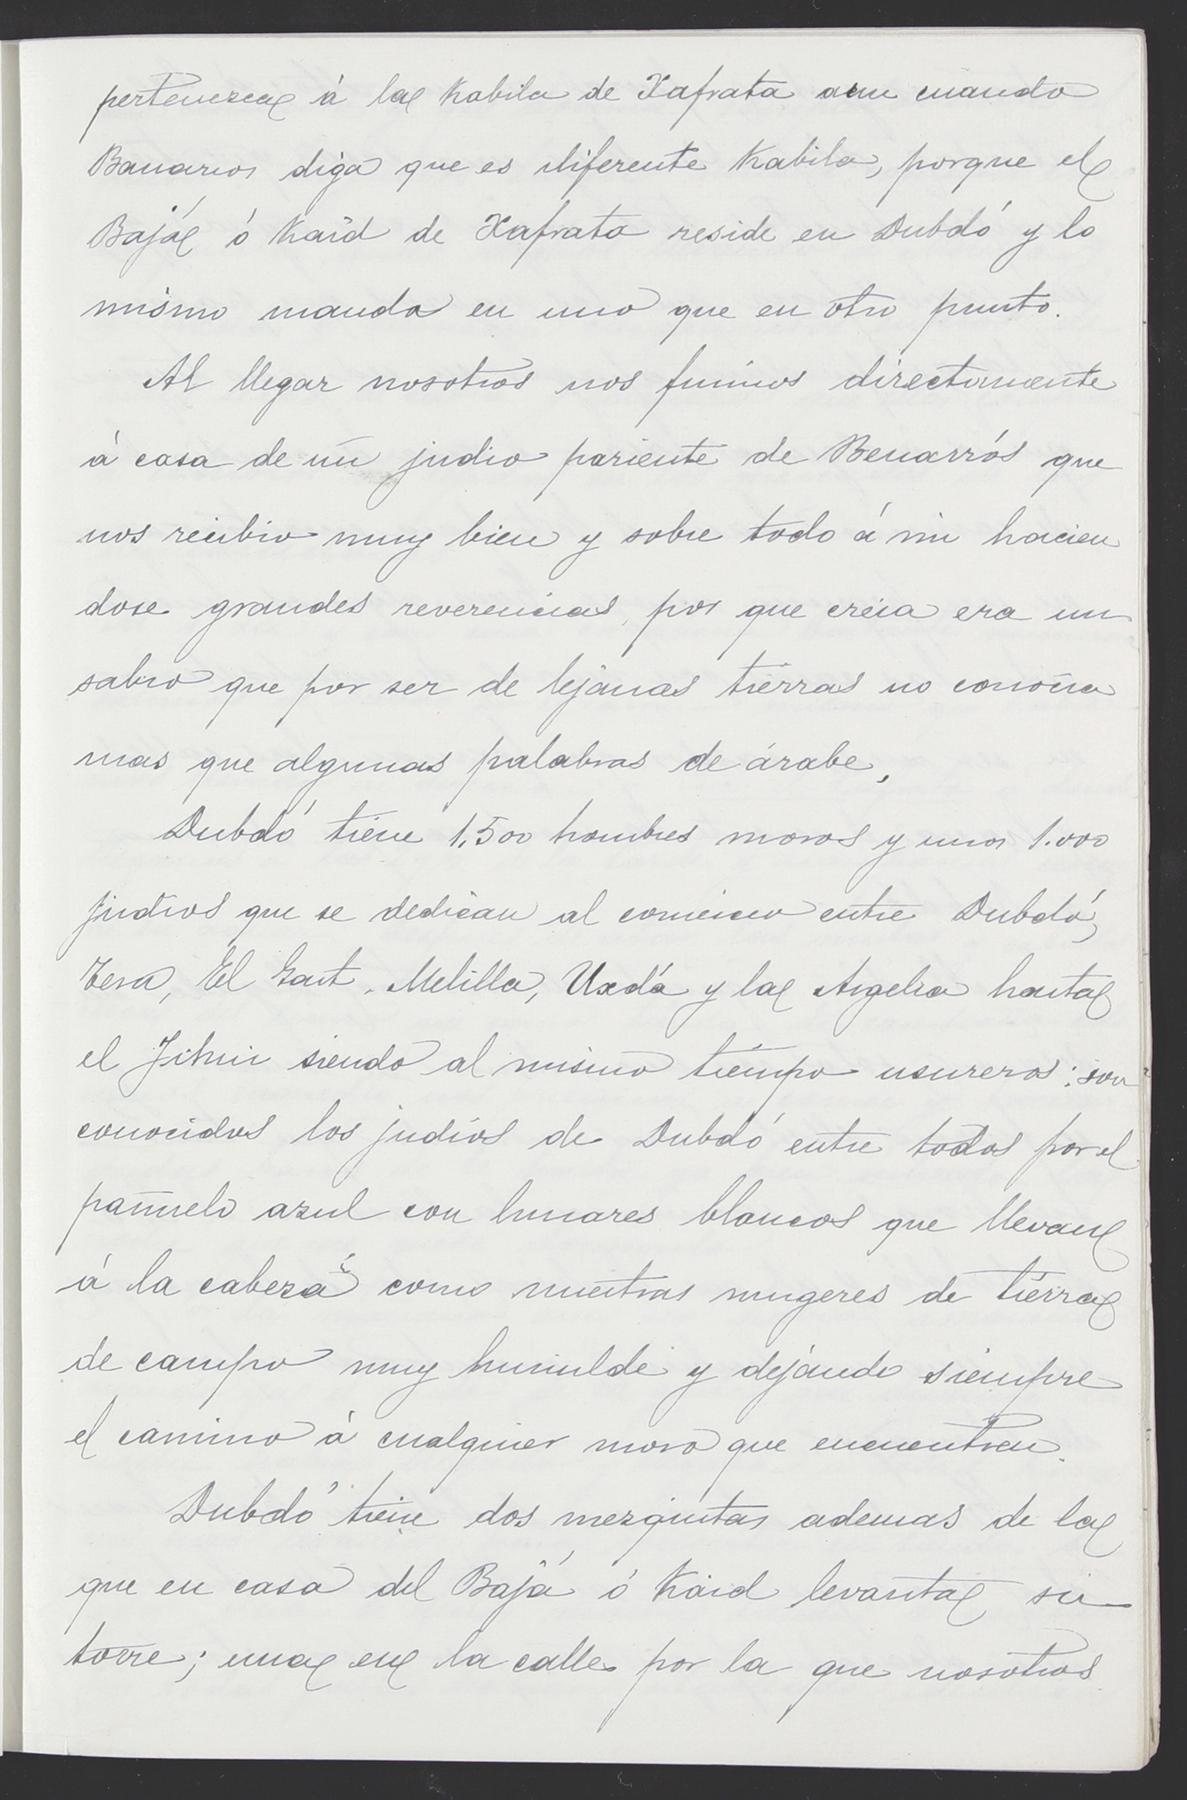 pertenezca á la Kabila de Xafrata aun cuando
Banarros diga que es diferente Kabila, porque el
Bajá ó Kaid de Xafrata reside en Dubdó y lo
mismo manda en uno que en otro punto.
Al llegar nosotros nos fuimos directamente
á casa de un judio pariente de Benarrós que
nos recibio muy bien y sobre todo á mi hacien
dose grandes reverencias, por que creia era un
sabio que por ser de lejanas tierras no conocia
mas que algunas palabras de árabe,
Dubdó tiene 1,500 hombres moros y unos 1.000
judios que se dedican al comercio entre Dubdó,
Tesa, El Gart, Melilla, Uxdá y la Argelia hasta
el siendo al mismo tiempo usureros: son
conocidos los judios de Dubdó entre todos por el
pañuelo azul con lunares blancos que llevan
á la cabeza como nuestras mugeres de tierra
de campo muy humilde y dejando siempre
el camino á cualquier moro que encuentren.
Dubdó tiene dos mezquitas ademas de la
que en casa del Bajá ó Kaid levanta su
torre; una en la calle por la que nosotros